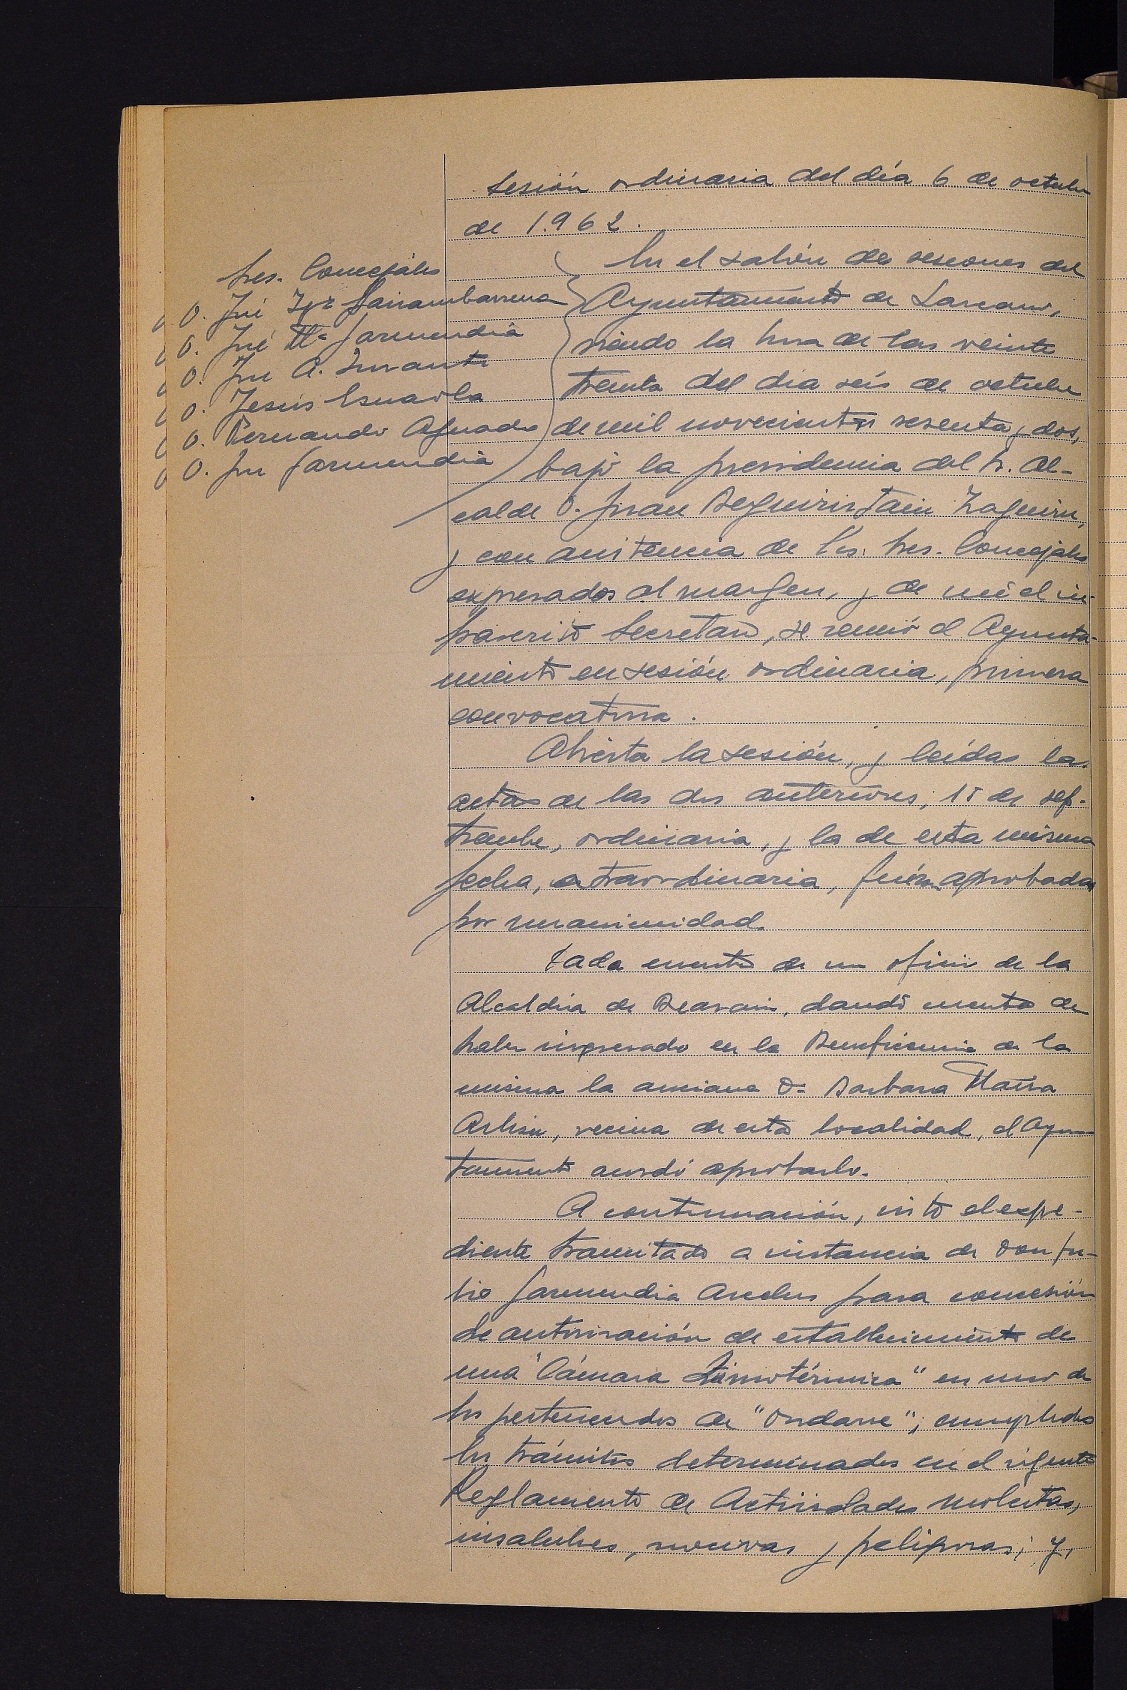 Sesión ordinaria del día 6 de octubre
de 1.962.
Sres. Concejales
D. José Igº Garicambarrena
D. José Mª Garmendia
D. José A. Insausti
D. Jesús Esnaola
D. Fernando Aguado
D. José Garmendia
En el salón de sesiones del
Ayuntamiento de Lazcano,
siendo la hora de las veinte
treinta del día seis de octubre
de mil novecientos sesenta y dos,
bajo la presidencia del Sr. Al-
calde D. Juan Aeguiristain
y con asistencia de los Sres. Concejales
expresados al margen, y de mí el in-
frascrito Secretario, se reunió el Ayunta-
miento en sesión ordinaria, primera
convocatoria.
Abierta la sesión, y leídas las
actas de las dos anteriores, 15 de sep-
tiembre, ordinaria, y la de esta misma
fecha, extraordinaria, fueron aprobadas
por unanimidad.
Dada cuenta de un oficio de la
Alcaldía de Beasain, dando cuenta de
haber ingresado en la Beneficencia de la
misma la anciana Dª Barbara Maiza
vecina de esta localidad, el Ayun-
tamiento acordó aprobarlo.
A continuación, visto el expe-
diente tramitado a instancia de Don Ju-
lio Garmendia para concesión
de autorización de establecimiento de
una "Cámara Zimotérmica" en uno de
los pertenecidos de "Ondarre"; cumplidos
los trámites determinados en el vigente
Reglamento de Actividades molestas,
insalubres, nocivas y peligrosas; y,